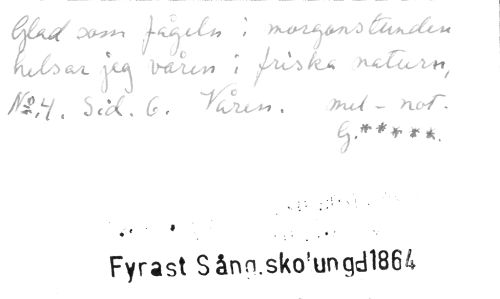 Glad som fågeln i morgonstunden
helsar jag våren i friska naturn,
No. 4. Sid. 6. Våren. mel-not.
G.*****.
Fyrast Sång.sko'ungd1864